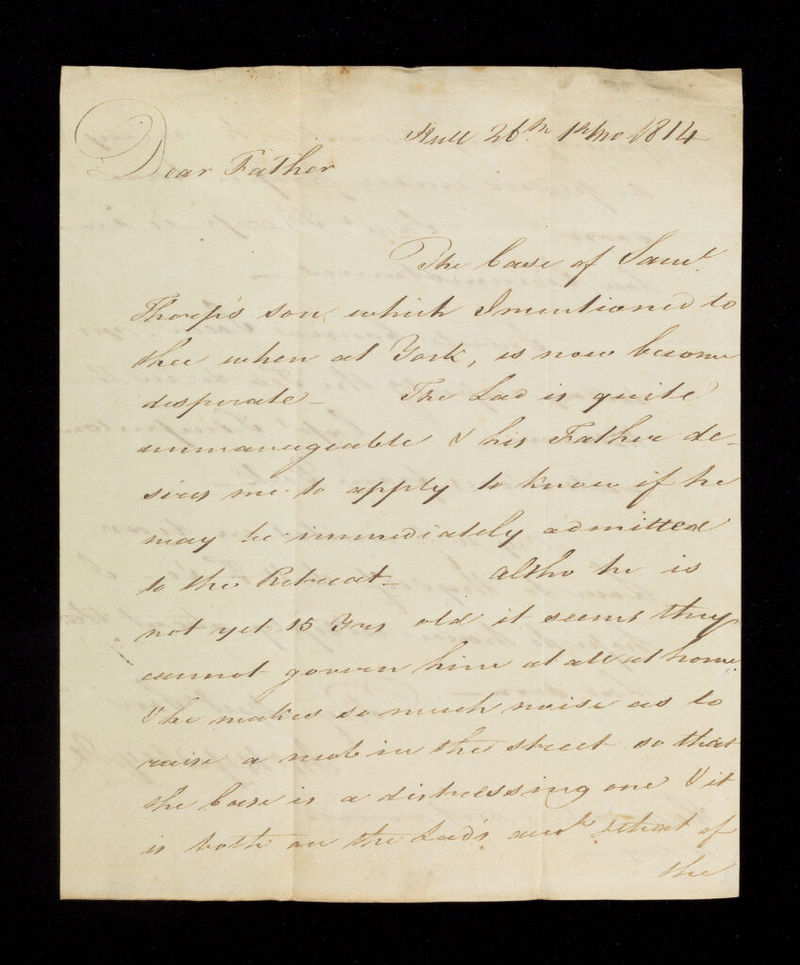 Hull 26th 1st Mo 1814
Dear Father
The Case of Saml
Thorp's son which I mentioned to
thee when at York, is now become
desperate — The Lad is quite
unmanageable & his Father de-
sires me to apply to know if he
may be immediately admitted
to the Retreat — altho he is
not yet 15 Yrs old it seems they
cannot govern him at all at home
& he makes so much noise as to
raise a mob in the street so that
the Case is a distressing one & it
is both on the Lad's acct & that of
the